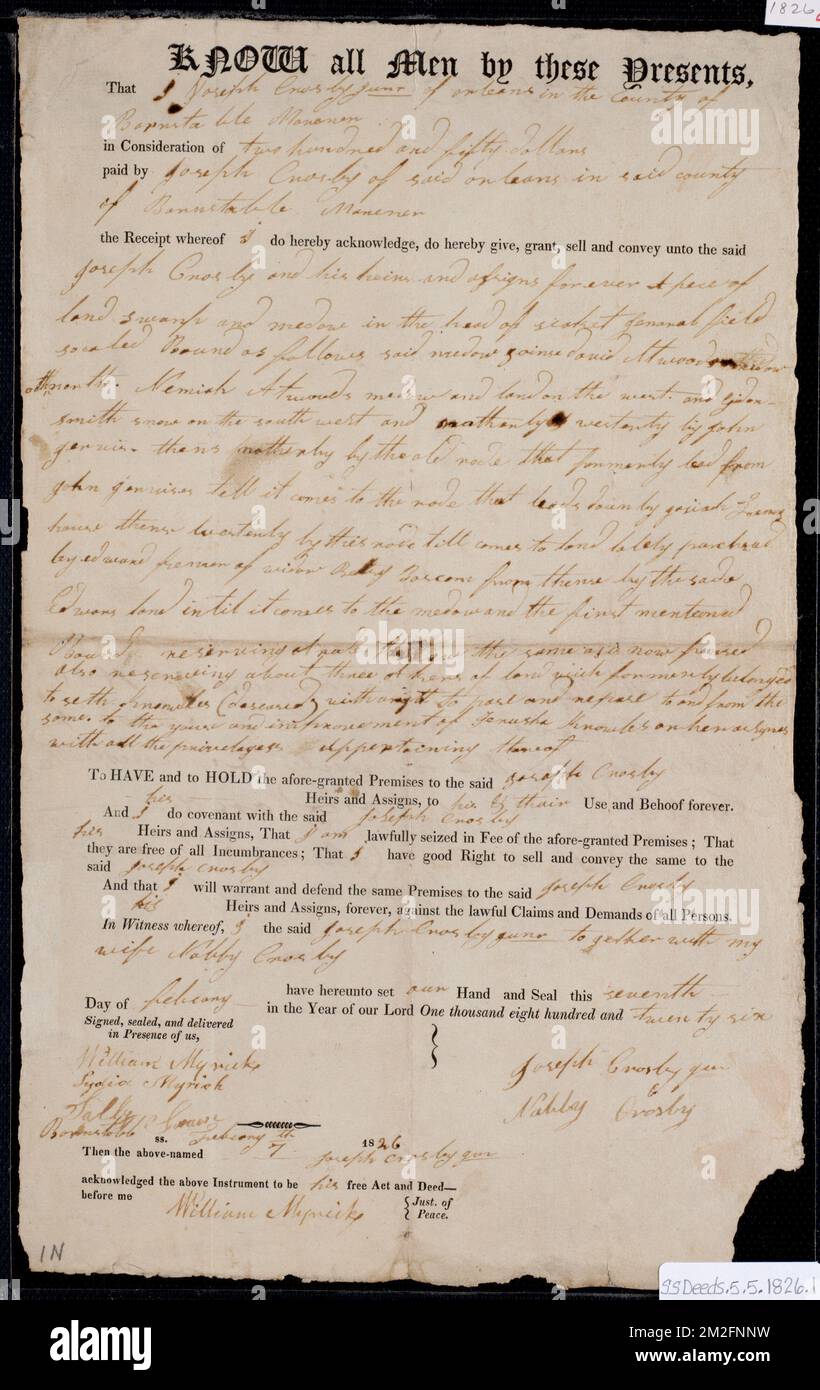 1826
KNOW all Men by these Presents,
That I Joseph Crosby junr of orleans in the County of
Barnstable
in Consideration of two hundred and fifty dollars
paid by Joseph Crosby of said orleans in said county
of Barnstable
the Receipt whereof I do hereby acknowledge, do hereby give, grant, sell and convey unto the said
Joseph Crosby and his heirs and assigns forever A pece of
land swamp and medow in the head of scaket general field
so caled Bound as follows said medow joins david Atwoods medow
north. Nemiah Atwoods medow and land on the west. and
smith snow on the south west and westerly by john
jervis. thens by the old rode that formerly lead from
john tell it comes to the rode that leads down by josiah
house thens westerly by this rode till comes to land lately purchased
by edward of widow Bascom from thense by the sade
Edwards land intil it comes to the medow and the first mentioned
Bound reserving the same as is now fensed
also reserving about three of land wich formerly belonged
to seth knowles (deseased) with a right to pase and repase to and from the
same. to the youse and improovement of Jerusha Knowles or her asigns
with all the privelages appertaining thereof
To HAVE and to HOLD the afore-granted Premises to the said Joseph Crosby
his Heirs and Assigns, to his & thair Use and Behoof forever.
And I do covenant with the said Joseph Crosby
his Heirs and Assigns, That I am lawfully seized in Fee of the afore-granted Premises; That
they are free of all Incumbrances; That I have good Right to sell and convey the same to the
said Joseph Crosby
And that I will warrant and defend the same Premises to the said Joseph Crosby
his Heirs and Assigns, forever, against the lawful Claims and Demands of all Persons.
In Witness whereof, I the said Joseph Crosby junr to gether with my
wife Nabby Crosby
have hereunto set our Hand and Seal this seventh
Day of febuary in the Year of our Lord One thousand eight hundred and twenty six
Signed, sealed, and delivered
in Presence of us,
William Myrick
Lydia Myrick
Joseph Crosby jun
&
Nabby Crosby
Barnstable ss. febuary 7th 1826
Then the above-named Joseph Crosby jun
acknowledged the above Instrument to be his free Act and Deed—
before me William Myrick { Just. of Peace.
1N
SSDeeds.5.5.1826.1
alamy
Image ID: 2M2FNNW
www.alamy.com